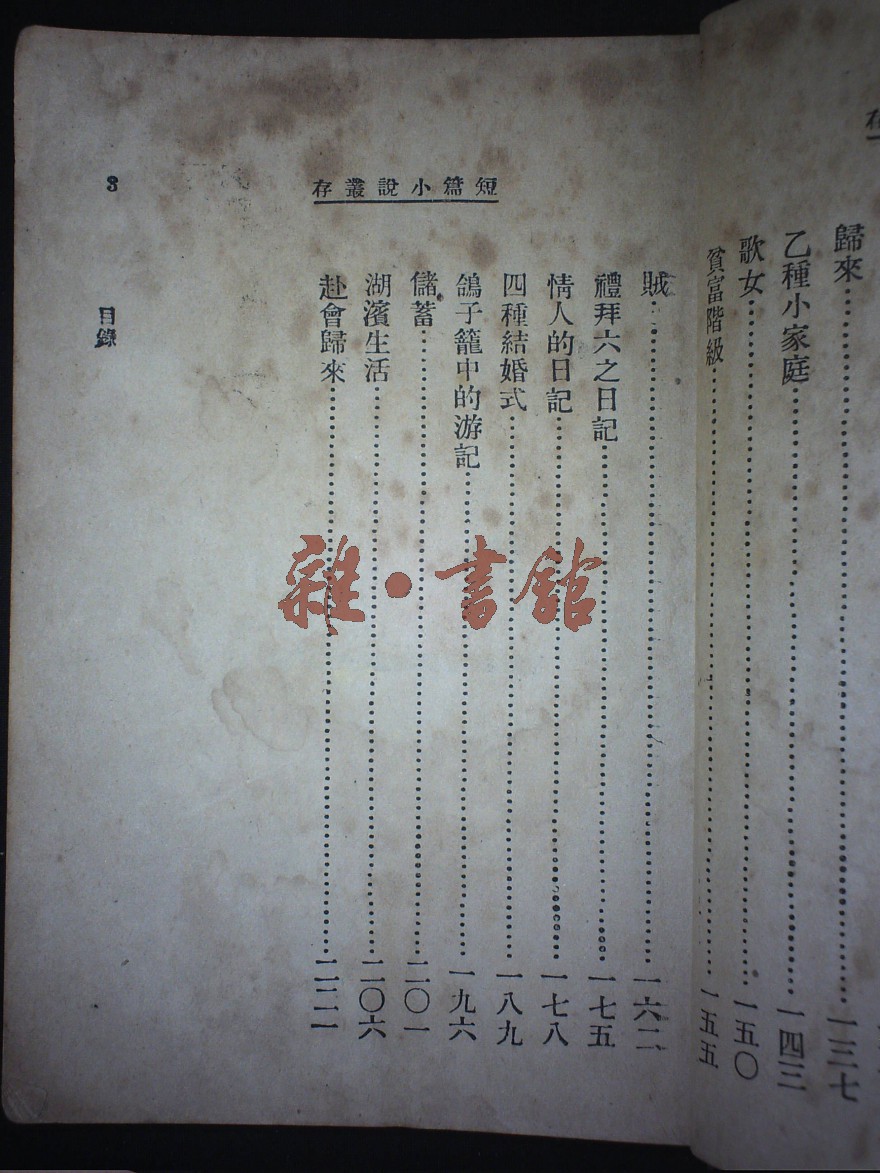 歸來……一三七
乙種小家庭……一四三
歌女……一五〇
貧富階級……一五五
短篇小說叢存
賊……一六二
禮拜六之日記……一七五
情人的日記……一七八
四種結婚式……一八九
鴿子籠中的游記……一九六
儲蓄……二〇一
湖濱生活……二〇六
赴會歸來……二二一
3
目錄
雜·書館